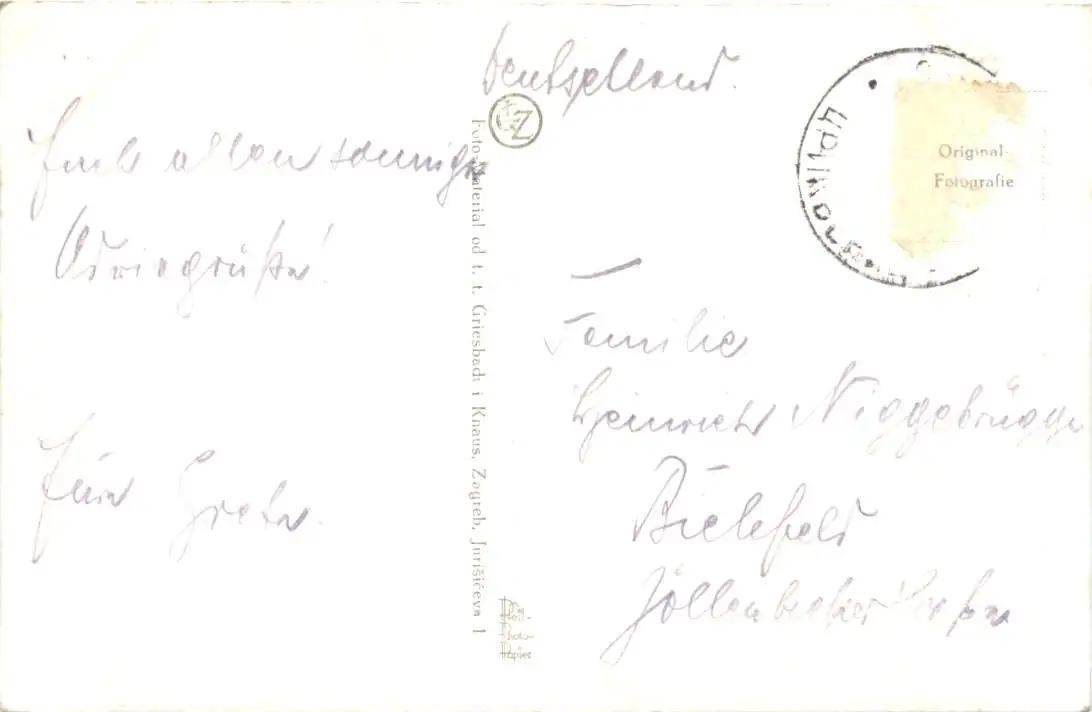 Deutschland.
Euch allen sonnige
Adriagrüße!
Eure Grete.
Familie
Heinrich Niggebrügge
Bielefeld
Jöllenbecker Straße
Original-
Fotografie
Foto-Material od t. t. Griesbach i Knaus, Zagreb, Jurišićeva 1
Photo-
Papier